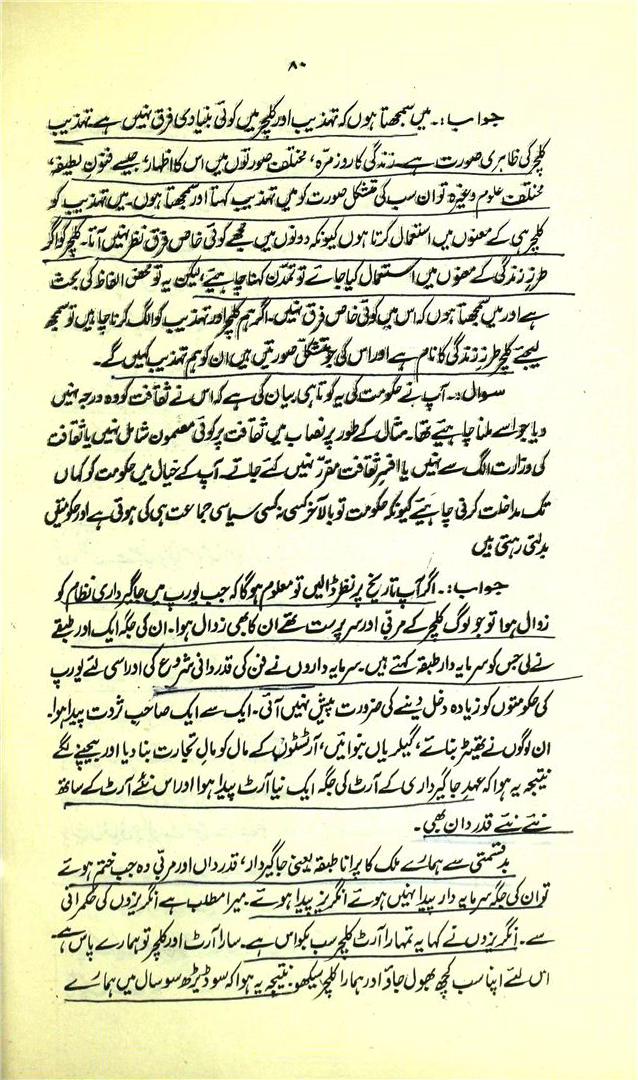 ۸۰
جواب:۔ میں سمجھتا ہوں کہ تہذیب اور کلچر میں کوئی بنیادی فرق نہیں ہے۔ تہذیب
کلچر کی ظاہری صورت ہے۔ زندگی کا روزمرّہ، مختلف صورتوں میں اس کا اظہار، جیسے فنونِ لطیفہ،
مختلف علوم وغیرہ تو ان سب کی متشکل صورت کو میں تہذیب کہتا اور سمجھتا ہوں۔ میں تہذیب کو
کلچر ہی کے معنوں میں استعمال کرتا ہوں کیونکہ دونوں میں مجھے کوئی خاص فرق نظر نہیں آتا۔ کلچر کو اگر
طرزِ زندگی کے معنوں میں استعمال کیا جائے تو تمدّن کہنا چاہیے، لیکن یہ تو محض الفاظ کی بحث
ہے اور میں سمجھتا ہوں کہ اس میں کوئی خاص فرق نہیں۔ اگر ہم کلچر اور تہذیب کو الگ کرنا چاہیں تو سمجھ
لیجئے کلچر طرزِ زندگی کا نام ہے اور اس کی جو متشکل صورتیں ہیں ان کو ہم تہذیب کہیں گے۔
سوال:۔ آپ نے حکومت کی یہ کوتاہی بیان کی ہے کہ اس نے ثقافت کو وہ درجہ نہیں
دیا جو اسے ملنا چاہیئے تھا۔ مثال کے طور پر نصاب میں ثقافت پر کوئی مضمون شامل نہیں یا ثقافت
کی وزارت الگ سے نہیں یا افسرِ ثقافت مقرر نہیں کئے جاتے۔ آپ کے خیال میں حکومت کو کہاں
تک مداخلت کرنی چاہیئے کیونکہ حکومت تو بالآخر کسی نہ کسی سیاسی جماعت ہی کی ہوتی ہے اور حکومتیں
بدلتی رہتی ہیں
جواب:۔ اگر آپ تاریخ پر نظر ڈالیں تو معلوم ہوگا کہ جب یورپ میں جاگیرداری نظام کو
زوال ہوا تو جو لوگ کلچر کے مربّی اور سرپرست تھے ان کا بھی زوال ہوا۔ ان کی جگہ ایک اور طبقے
نے لی جس کو سرمایہ دار طبقہ کہتے ہیں۔ سرمایہ داروں نے فن کی قدردانی شروع کی اور اسی لئے یورپ
کی حکومتوں کو زیادہ دخل دینے کی ضرورت پیش نہیں آئی۔ ایک سے ایک صاحبِ ثروت پیدا ہوا۔
ان لوگوں نے تھیٹر بنائے، گیلریاں بنوائیں، آرٹسٹوں کے مال کو مالِ تجارت بنا دیا اور بیچنے لگے
نتیجہ یہ ہوا کہ عہدِ جاگیرداری کے آرٹ کی جگہ ایک نیا آرٹ پیدا ہوا اور اس نئے آرٹ کے ساتھ
نئے نئے قدردان بھی۔
بدقسمتی سے ہمارے ملک کا پرانا طبقہ یعنی جاگیردار، قدرداں اور مربّی وہ جب ختم ہوئے
تو ان کی جگہ سرمایہ دار پیدا نہیں ہوئے انگریز پیدا ہوئے۔ میرا مطلب ہے انگریزوں کی حکمرانی
سے۔ انگریزوں نے کہا یہ تمہارا آرٹ کلچر سب بکواس ہے۔ سارا آرٹ اور کلچر تو ہمارے پاس ہے
اس لئے اپنا سب کچھ بھول جاؤ اور ہمارا کلچر سیکھو۔ نتیجہ یہ ہوا کہ سو ڈیڑھ سو سال میں ہمارے